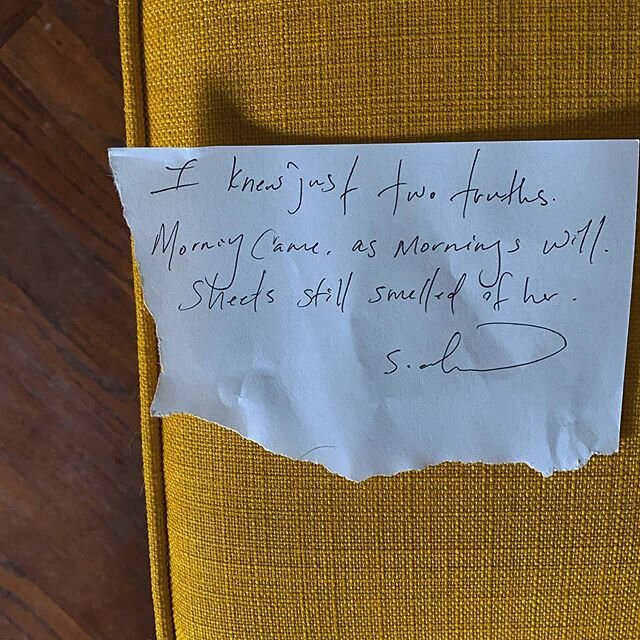 I knew just two truths.
Morning Came. as Mornings will.
Sheets still smelled of her.